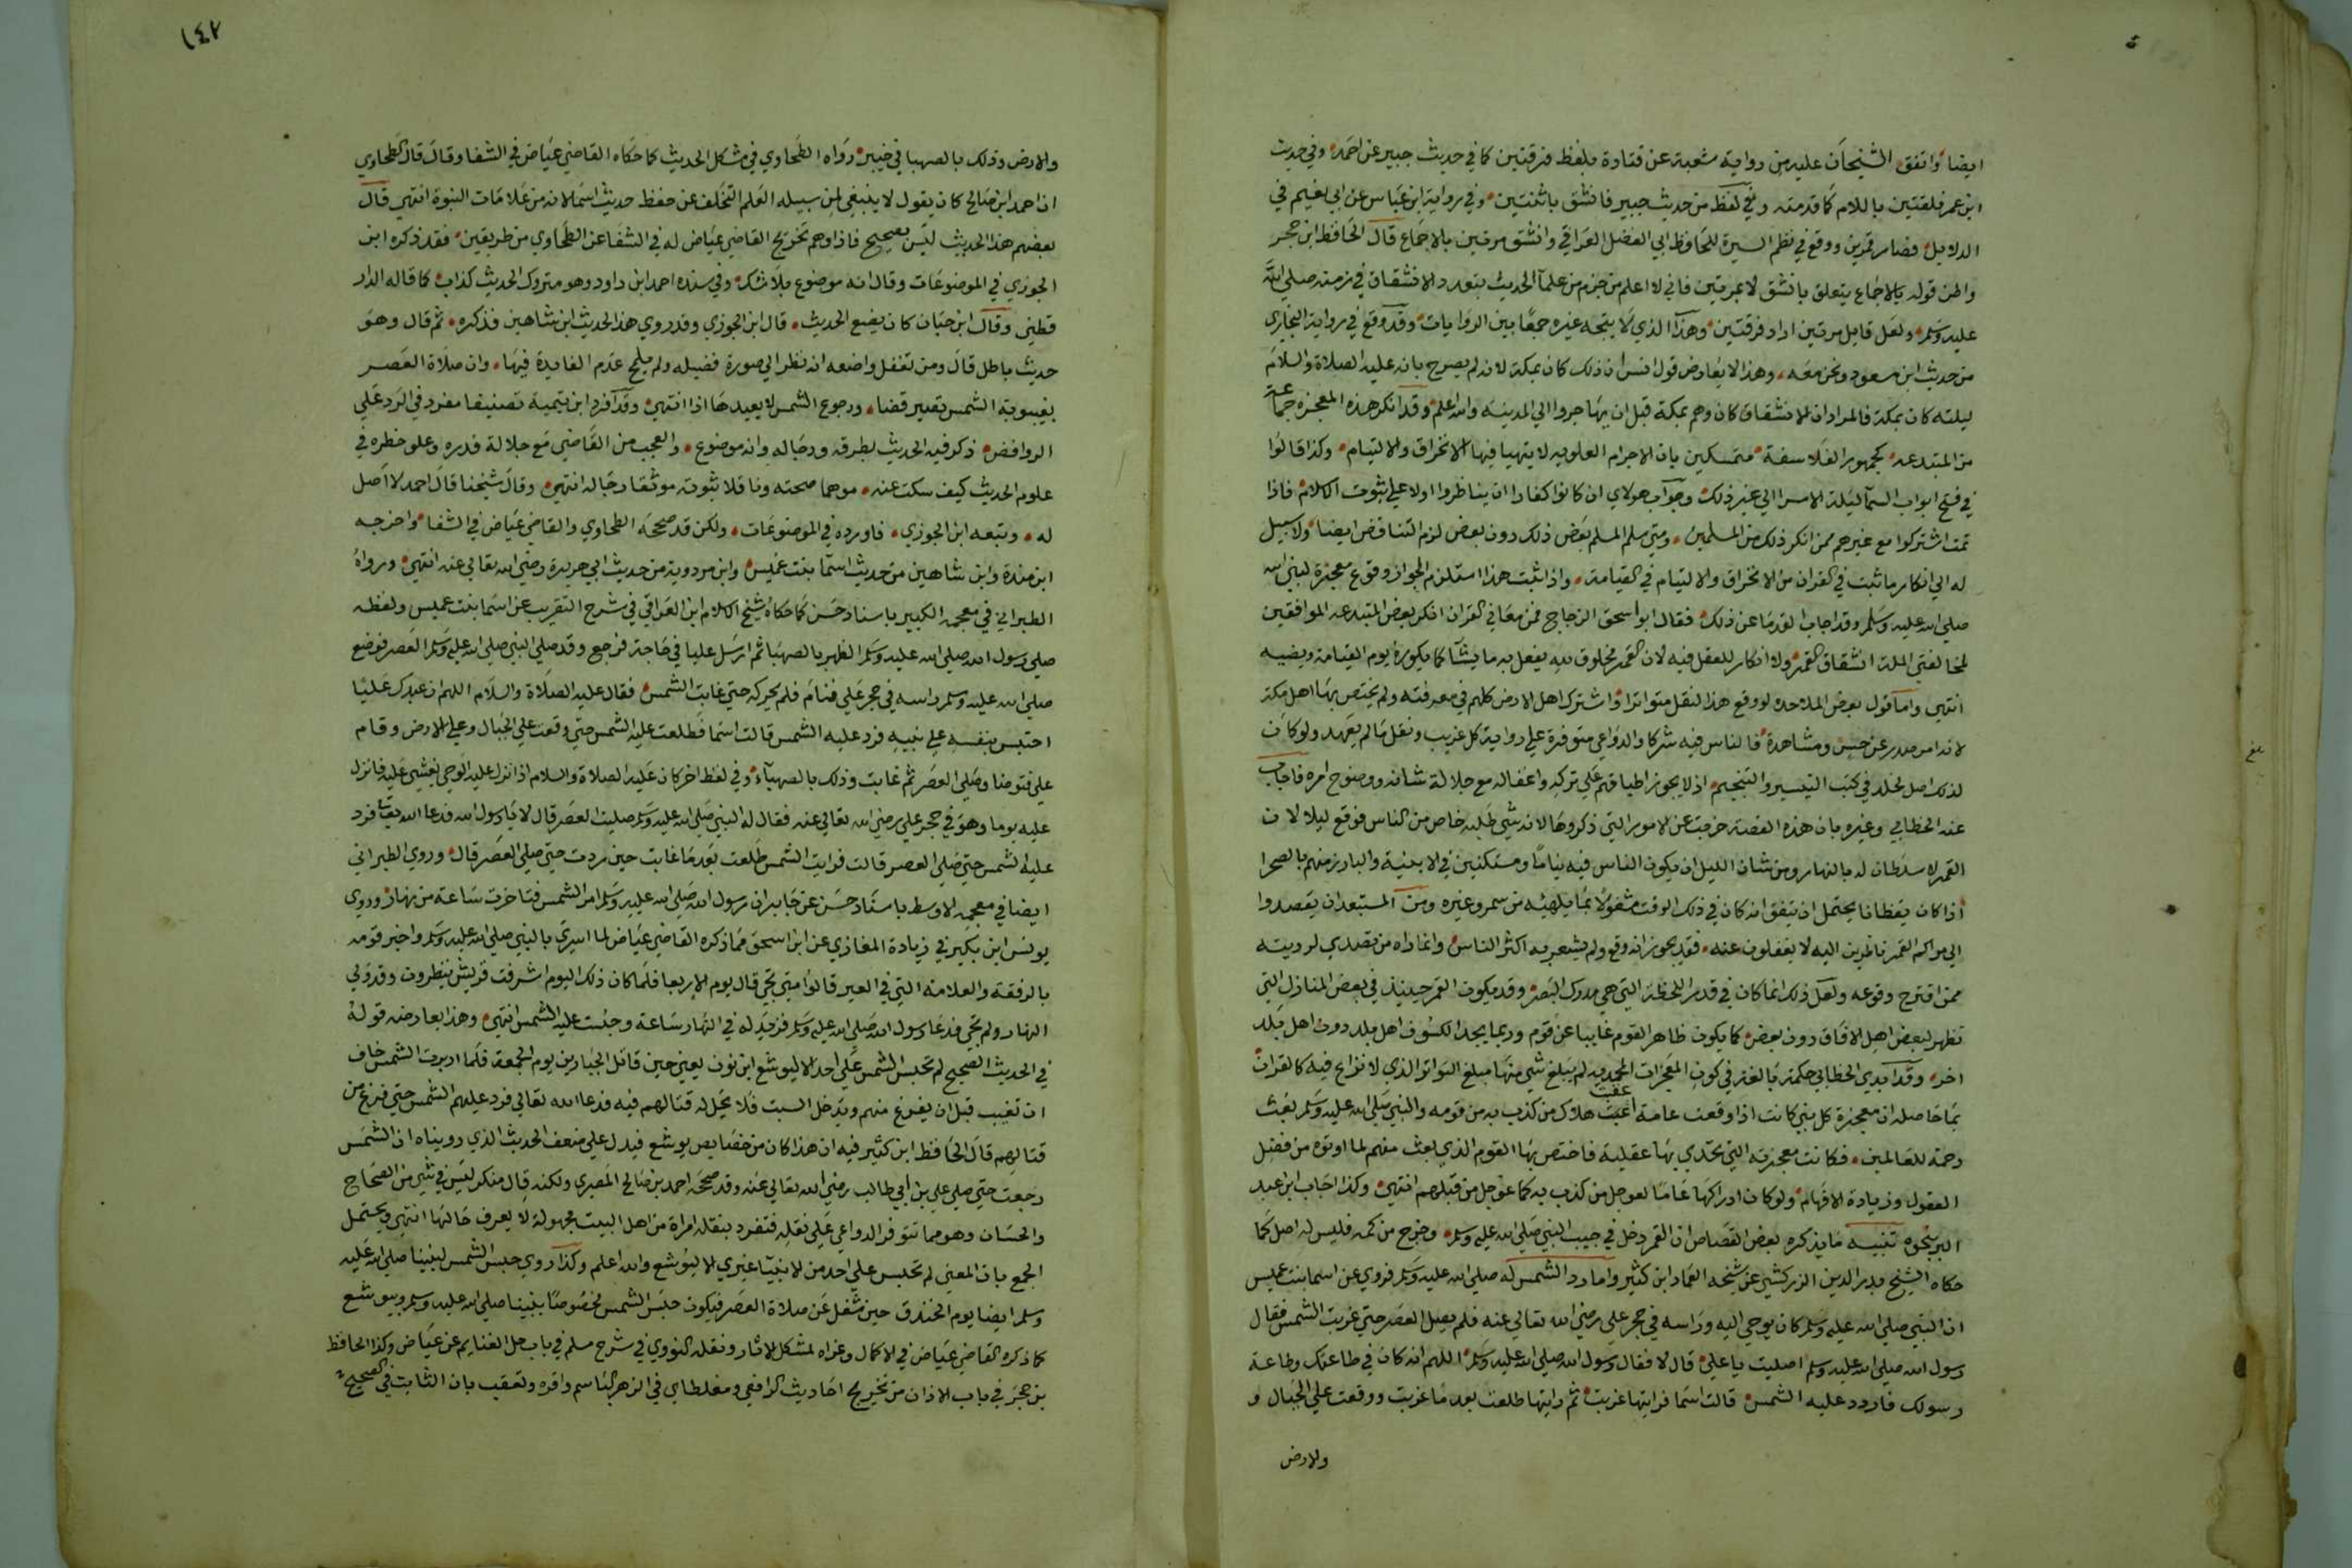 ايضا واتفق الشيخان عليه من رواية شعبة عن قتادة بلفظ فرقتين كما في حديث جبير عن احمد وفي حديث
ابن عمر فلقتين باللام كما قدمته وفي لفظ من حديث جبير فانشق باثنتين وفي رواية ابن عباس عن ابي نعيم في
الدلايل فصار قمرين ووقع في نظم السيرة للحافظ ابي الفضل العراقي وانشق مرتين بالاجماع قال الحافظ ابن حجر
واظن قوله بالاجماع يتعلق بانشق لا بمرتين فاني لا اعلم من جزم من علما الحديث بتعدد الانشقاق في زمنه صلي الله
عليه وسلم ولعل قايل مرتين اراد فرقتين وهذا الذي لا يتجه غيره جمعا بين الروايات وقد وقع في رواية البخاري
من حديث ابن مسعود ونحن معه وهذا لا يعارض قول انس ان ذلك كان بمكة لانه لم يصرح بان عليه الصلاة والسلام
ليلته كان بمكة فالمراد ان الانشقاق كان وهم بمكة قبل ان يهاجروا الي المدينة والله اعلم وقد انكر هذه المعجزة جماعة
من المبتدعة كجمهور الفلاسفة متمسكين بان الاجرام العلوية لا يتهيا فيها الانخراق والالتيام وكذا قالوا
في فتح ابواب السما ليلة الاسرا الي غير ذلك وجواب هولاي ان كانوا كفارا ان يناظروا اولا علي ثبوت الاسلام فاذا
تمت اشتركوا مع غيرهم ممن انكر ذلك من المسلمين ومتي سلم المسلم بعض ذلك دون بعض لزم التناقض ايضا ولا سبيل
له الي انكار ما ثبت في القران من الانخراق والالتيام في القيامة واذا ثبت هذا استلزم الجواز وقوع معجزة لنبي الله
صلي الله عليه وسلم وقد اجاب القدما عن ذلك فقال ابو اسحق الزجاج في معاني القران انكر بعض المبتدعة الموافقين
لمخالفي الملة انشقاق القمر ولا انكار للعقل فيه لان القمر مخلوق لله يفعل به ما يشا كما يكوره يوم القيامة ويفنيه
انتهي واما قول بعض الملاحدة لو وقع هذا لنقل متواترا واشترك اهل الارض كلهم في معرفته ولم يختص بها اهل مكة
لانه امر صدر عن حس ومشاهدة فالناس فيه شركا والدواعي متوفرة علي رواية كل غريب ونقل ما لم يعهد ولو كان
لذلك اصل لخلد في كتب التيسير والتنجيم اذ لا يجوز اطباقهم علي تركه واغفاله مع جلالة شانه ووضوح امره فاجاب
عنه الخطابي وغيره بان هذه القصة خرجت عن الامور التي ذكروها لانه شي طلبه خاص من الناس فوقع ليلا لان
القمر لا سلطان له بالنهار ومن شان الليل ان يكون الناس فيه نياما ومستكنين في الابنية والبارز منهم بالصحرا
اذا كان يقظانا يحتمل ان يتفق انه كان في ذلك الوقت مشغولا بما يلهيه من سمر وغيره ومن المستبعد ان يقصدوا
الي مراكز القمر ناظرين اليه لا يغفلون عنه فقد يجوز انه وقع ولم يشعر به اكثر الناس وانما راه من تصدي لرويته
ممن اقترح وقوعه ولعل ذلك انما كان في قدر اللحظة التي هي مدرك البصر وقد يكون القمر حينيذ في بعض المنازل التي
تظهر لبعض اهل الافاق دون بعض كما يكون ظاهرا لقوم غايبا عن قوم وربما يجد الكسوف اهل بلد دون اهل بلد
اخر وقد ابدي الخطابي حكمة بالغة في كون المعجزات المحمدية لم يبلغ شي منها مبلغ التواتر الذي لا نزاع فيه كالقران
بما حاصله ان معجزة كل نبي كانت اذا وقعت عامة اعقبت هلاك من كذب به من قومه والنبي صلي الله عليه وسلم بعث
رحمة للعالمين فكانت معجزته التي تحدي بها عقلية فاختص بها القوم الذي بعث منهم لما اوتوه من فضل
العقول وزيادة الافهام ولو كان ادراكها عاما لعوجل من كذب به كما عوجل من قبلهم انتهي وكذا اجاب ابن عبد
البر بنحوه تنبيه ما يذكره بعض القصاص ان القمر دخل في جيب النبي صلي الله عليه وسلم وخرج من كمه فليس له اصل كما
حكاه الشيخ بدر الدين الزركشي عن شيخه العماد ابن كثير واما رد الشمس له صلي الله عليه وسلم فروي عن اسما بنت عميس
ان النبي صلي الله عليه وسلم كان يوحي اليه وراسه في حجر علي رضي الله تعالي عنه فلم يصل العصر حتي غربت الشمس فقال
رسول الله صلي الله عليه وسلم اصليت يا علي قال لا فقال رسول الله صلي الله عليه وسلم اللهم انه كان في طاعتك وطاعة
رسولك فاردد عليه الشمس قالت اسما فرايتها غربت ثم رايتها طلعت بعد ما غربت ووقعت علي الجبال و
والارض
١٤٢
والارض وذلك بالصهبا في خيبر رواه الطحاوي في مشكل الحديث كما حكاه القاضي عياض في الشفا وقال قال الطحاوي
ان احمد ابن صالح كان يقول لا ينبغي لمن سبيله العلم التخلف عن حفظ حديث اسما لانه من علامات النبوة انتهي قال
بعضهم هذا الحديث ليس بصحيح فاذا وهم تخريج القاضي عياض له في الشفا عن الطحاوي من طريقين فقد ذكره ابن
الجوزي في الموضوعات وقال انه موضوع بلا شك وفي سنده احمد ابن داود وهو متروك الحديث كذاب كما قاله الدار
قطني وقال ابن حبان كان يضع الحديث قال ابن الجوزي وقد روي هذا الحديث ابن شاهين فذكره ثم قال وهو
حديث باطل قال ومن تغفل واضعه انه نظر الي صورة فضيله ولم يلمح عدم الفايدة فيها وان صلاة العصر
بغيبوبة الشمس تصير قضا ورجوع الشمس لا يعيدها اذا انتهي وقد افرد ابن تيمية تصنيفا مفرد في الرد علي
الروافض ذكر فيه الحديث بطرقه ورجاله وانه موضوع والعجب من القاضي مع جلالة قدره وعلو خطره في
علوم الحديث كيف سكت عنه موهما صحته وناقلا ثبوته موثقا رجاله انتهي وقال شيخنا قال احمد لا اصل
له وتبعه ابن الجوزي فاورده في الموضوعات ولكن قد صححه الطحاوي والقاضي عياض في الشفا واخرجه
ابن مندة وابن شاهين من حديث اسما بنت عميس وابن مردوية من حديث ابي هريرة رضي الله تعالي عنه انتهي ورواه
الطبراني في معجمه الكبير باسناد حسن كما حكاه شيخ الاسلام ابن العراقي في شرح التقريب عن اسما بنت عميس ولفظه
صلي رسول الله صلي الله عليه وسلم الظهر بالصهبا ثم ارسل عليا في حاجة فرجع وقد صلي النبي صلي الله عليه وسلم العصر فوضع
صلي الله عليه وسلم راسه في حجر علي فنام فلم يحركه حتي غابت الشمس فقال عليه الصلاة والسلام اللهم ان عبدك عليا
احتبس بنفسه علي نبيه فرد عليه الشمس قالت اسما فطلعت عليه الشمس حتي وقعت علي الجبال وعلي الارض وقام
علي فتوضا وصلي العصر ثم غابت وذلك بالصهباء وفي لفظ اخر كان عليه الصلاة والسلام اذا نزل عليه الوحي يغشي عليه فانزل
عليه يوما وهو في حجر علي رضي الله تعالي عنه فقال له النبي صلي الله عليه وسلم صليت العصر قال لا يا رسول الله فدعا الله تعالي فرد
عليه الشمس حتي صلي العصر قالت فرايت الشمس طلعت بعد ما غابت حين ردت حتي صلي العصر قال وروي الطبراني
ايضا في معجمه الاوسط باسناد حسن عن جابر ان رسول الله صلي الله عليه وسلم امر الشمس فتاخرت ساعة من نهار وروي
يونس ابن بكير في زيادة المغازي عن ابن اسحق مما ذكره القاضي عياض لما اسري بالنبي صلي الله عليه وسلم واخبر قومه
بالرفقة والعلامة التي في العير قالوا متي تجي قال يوم الاربعا فلما كان ذلك اليوم اشرفت قريش ينظرون وقد ولي
النهار ولم تجي فدعا رسول الله صلي الله عليه وسلم فزيد له في النهار ساعة وحبست عليه الشمس انتهي وهذا يعارضه قوله
في الحديث الصحيح لم تحبس الشمس علي احد الا ليوشع ابن نون يعني حين قاتل الجبارين يوم الجمعة فلما ادبرت الشمس خاف
ان تغيب قبل ان يفرغ منهم ويدخل السبت فلا يحل له قتالهم فيه فدعا الله تعالي فرد عليهم الشمس حتي فرغ من
قتالهم قال الحافظ ابن كثير فيه ان هذا كان من خصايص يوشع فيدل علي ضعف الحديث الذي رويناه ان الشمس
رجعت حتي صلي علي بن ابي طالب رضي الله تعالي عنه وقد صححه احمد بن صالح المصري ولكنه قال منكر ليس في شي من الصحاح
والحسان وهو مما تتوفر الدواعي علي نقله فتفرد بنقله امراة من اهل البيت مجهولة لا يعرف حالها انتهي ويحتمل
الجمع بان المعني لم تحبس علي احد من الانبيا غيري الا ليوشع والله اعلم وكذا روي حبس الشمس لنبينا صلي الله عليه
وسلم ايضا يوم الخندق حين شغل عن صلاة العصر فيكون حبس الشمس مخصوصا بنبينا صلي الله عليه وسلم وبيوشع
كما ذكره القاضي عياض في الاكمال وعزاه لمشكل الاثار ونقله النووي في شرح مسلم في باب حل الغنايم عن عياض وكذا الحافظ
بن حجر في باب الاذان من تخريج احاديث الرافعي ومغلطاي في الزهر الباسم واقره وتعقب بان الثابت في الصحيح